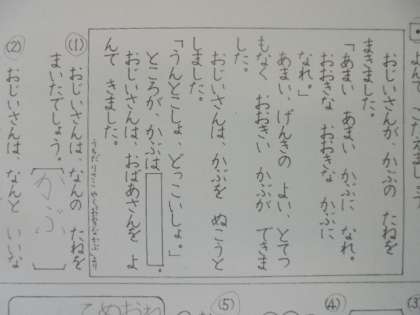 おじいさんが かぶの たねを
まきました。
「あまい あまい かぶに なれ。
おおきな おおきな かぶに
なれ。」
あまい、げんきの よい、とてつ
もなく おおきい かぶが できま
した。
おじいさんは、かぶを ぬこうと
しました。
「うんとこしょ、どっこいしょ。」
ところが、かぶは
おじいさんは、おばあさんを よ
んで きました。
(1) おじいさんは、なんの たねを
まいたでしょう。
かぶ
(2) おじいさんは なんと いいな
(3)
(4)
(5)